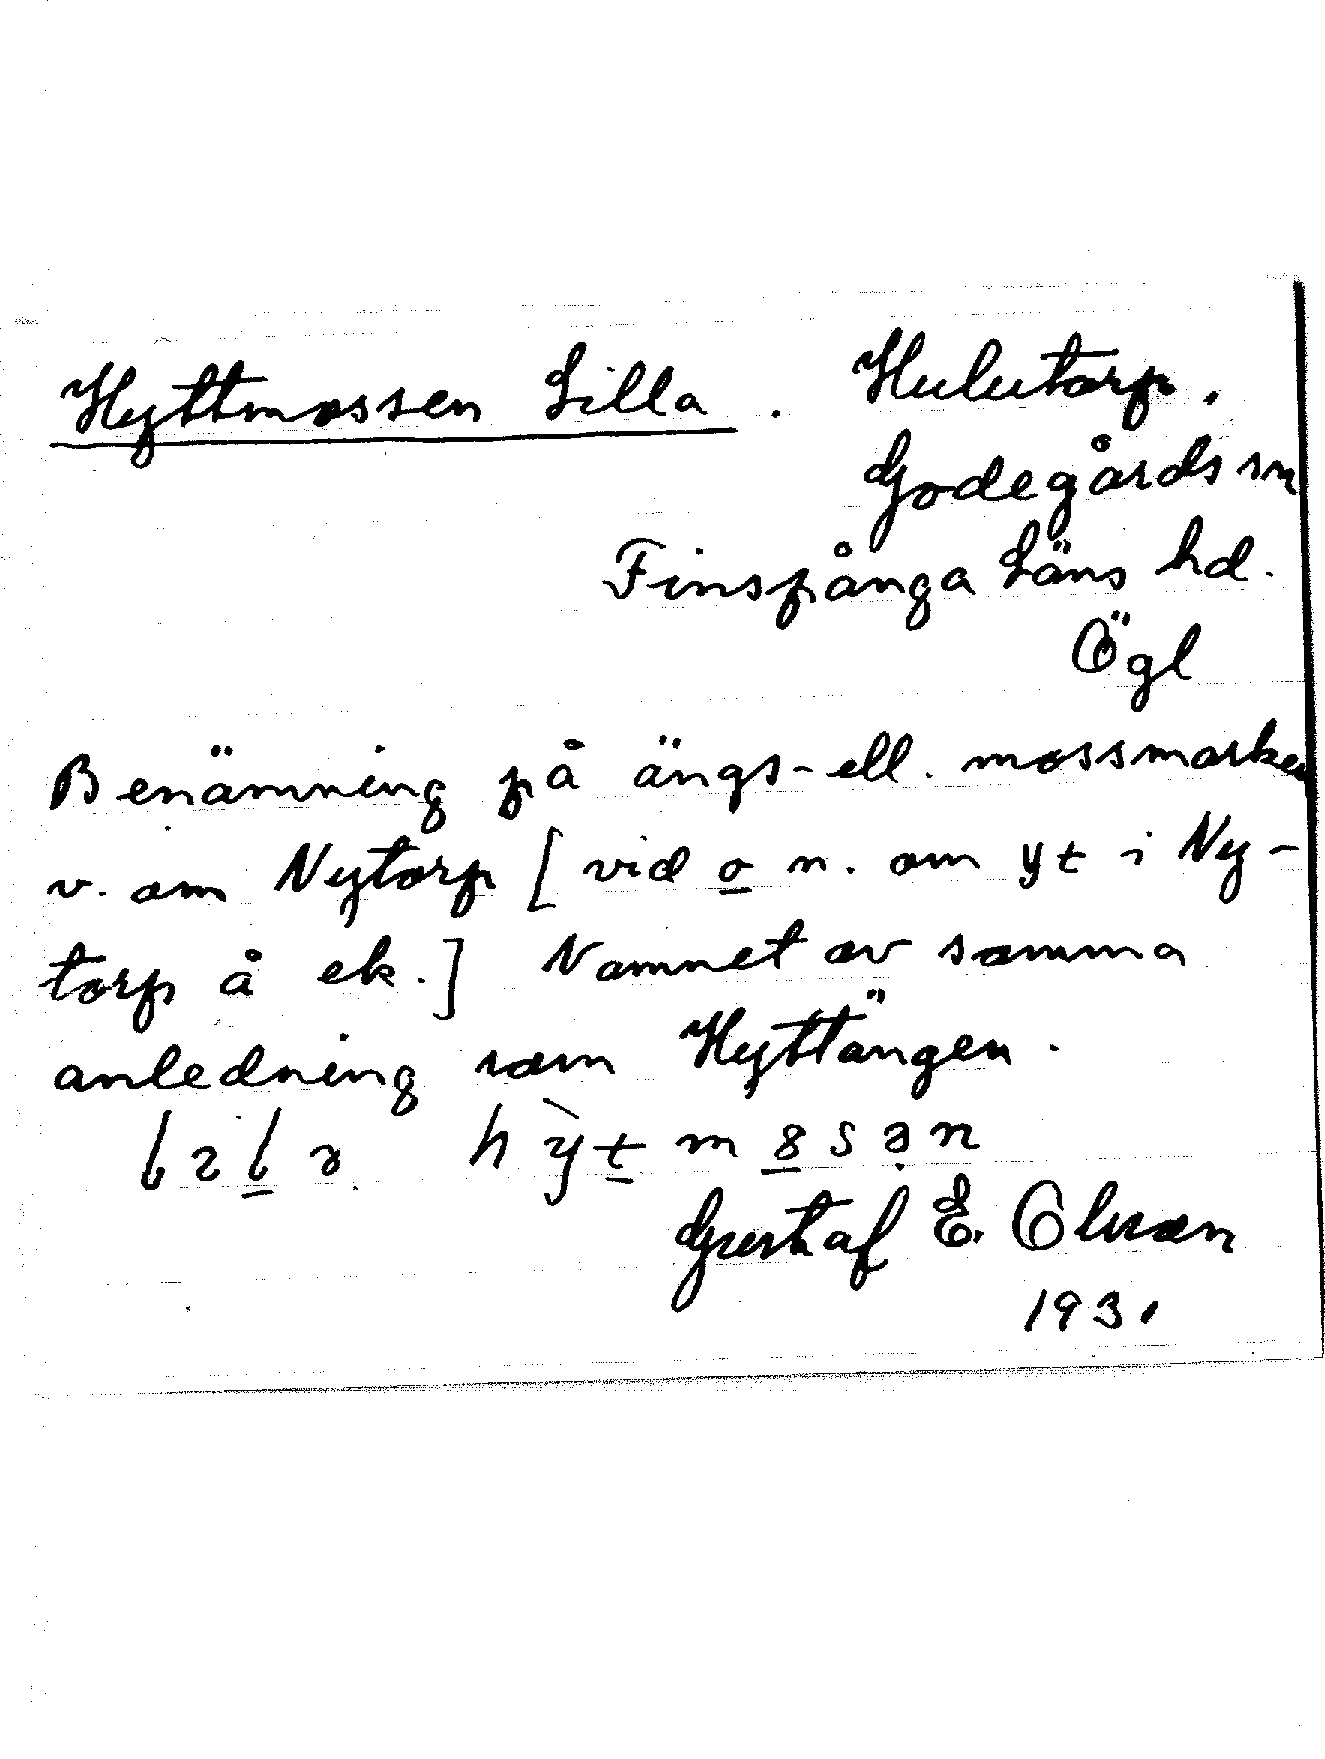 Hyttmossen Lilla. Hulutorp.
Godegårds sn
Finspånga Läns hd.
Ögl
Benämning på ängs- ell. mossmarken
v. om Nytorp [vid o n. om yt i Ny-
torp å ek.] Namnet av samma
anledning som Hyttängen.
Gustaf E. Olsson
1931